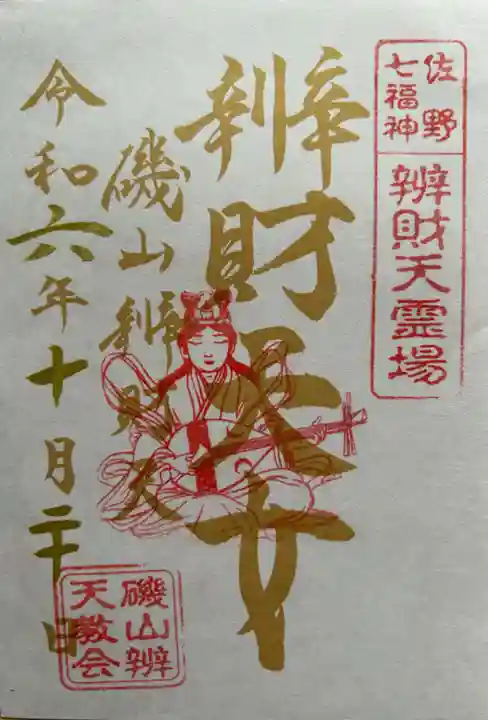 佐野
七福神
辨財天霊場
辨財天女
磯山辨財天
令和六年十月二十日
磯山辨
天教会